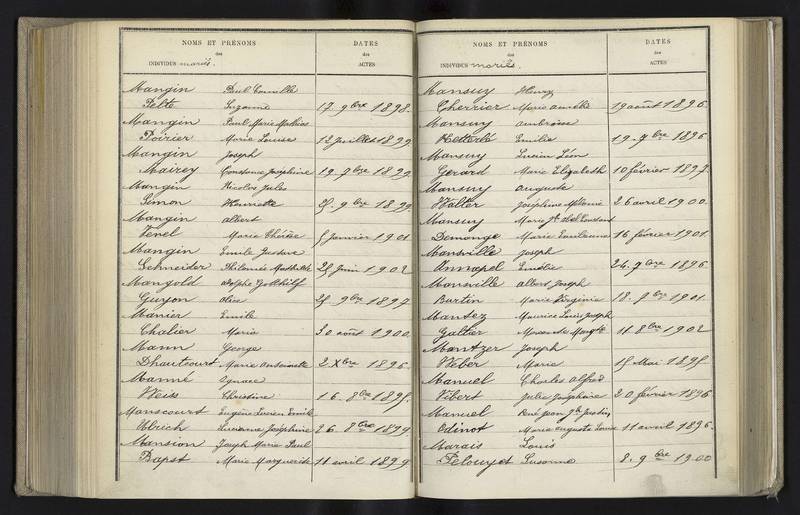 NOMS ET PRÉNOMS
des
INDIVIDUS mariés.
DATES
des
ACTES
Mangin Paul Camille
Pelte Suzanne 17. 9bre 1898.
Mangin Paul Marie Mathias
Poirier Marie Louise 12 juillet 1899
Mangin Joseph
Mairey Constance Joséphine 19. 7bre 1899
Mangin Nicolas Jules
Simon Henriette 25. 9bre 1899
Mangin Albert
Venel Marie Thérèse 5 janvier 1901
Mangin Emile Gustave
Schneider Philomène Mathilde 25 juin 1902
Mangold Adolphe Gotthilf
Guyon Alice 25. 9bre 1897
Manier Emile
Chalier Marie 30 août 1900
Mann George
Dhautcourt Marie Antoinette 2. Xbre 1896
Manné Ignace
Weiss Christine 16. 8bre 1895.
Manscourt Eugène Lucien Emile
Ulrich Lucienne Joséphine 26. 8bre 1899
Mansion Joseph Marie Paul
Bapst Marie Marguerite 11 avril 1899
NOMS ET PRÉNOMS
des
INDIVIDUS mariés.
DATES
des
ACTES
Mansuy Henry
Cherrier Marie 19 août 1896.
Mansuy Ambroise
Emilie 19. 7bre 1896
Mansuy Lucien Léon
Gerard Marie Elizabeth 10 février 1897.
Mansuy Auguste
Walter Joséphine Mélanie 26 avril 1900.
Mansuy Marie
Demonge Marie 16 février 1901.
Mansville Joseph
Annapel Emélie 24. 7bre 1896
Mansville Albert Joseph
Bartin Marie Virginie 18. 7bre 1901.
Mantez Maurice Louis Joseph
Galtier 11. 8bre 1902
Mantzer Joseph
Weber Marie 15 Mai 1895
Manuel Charles Alfred
Vebert Julie Joséphine 20 février 1896
Manuel René Jean
Odinot Marie Auguste Louise 11 avril 1896.
Marais Louis
Susanne 8. 9bre 1900